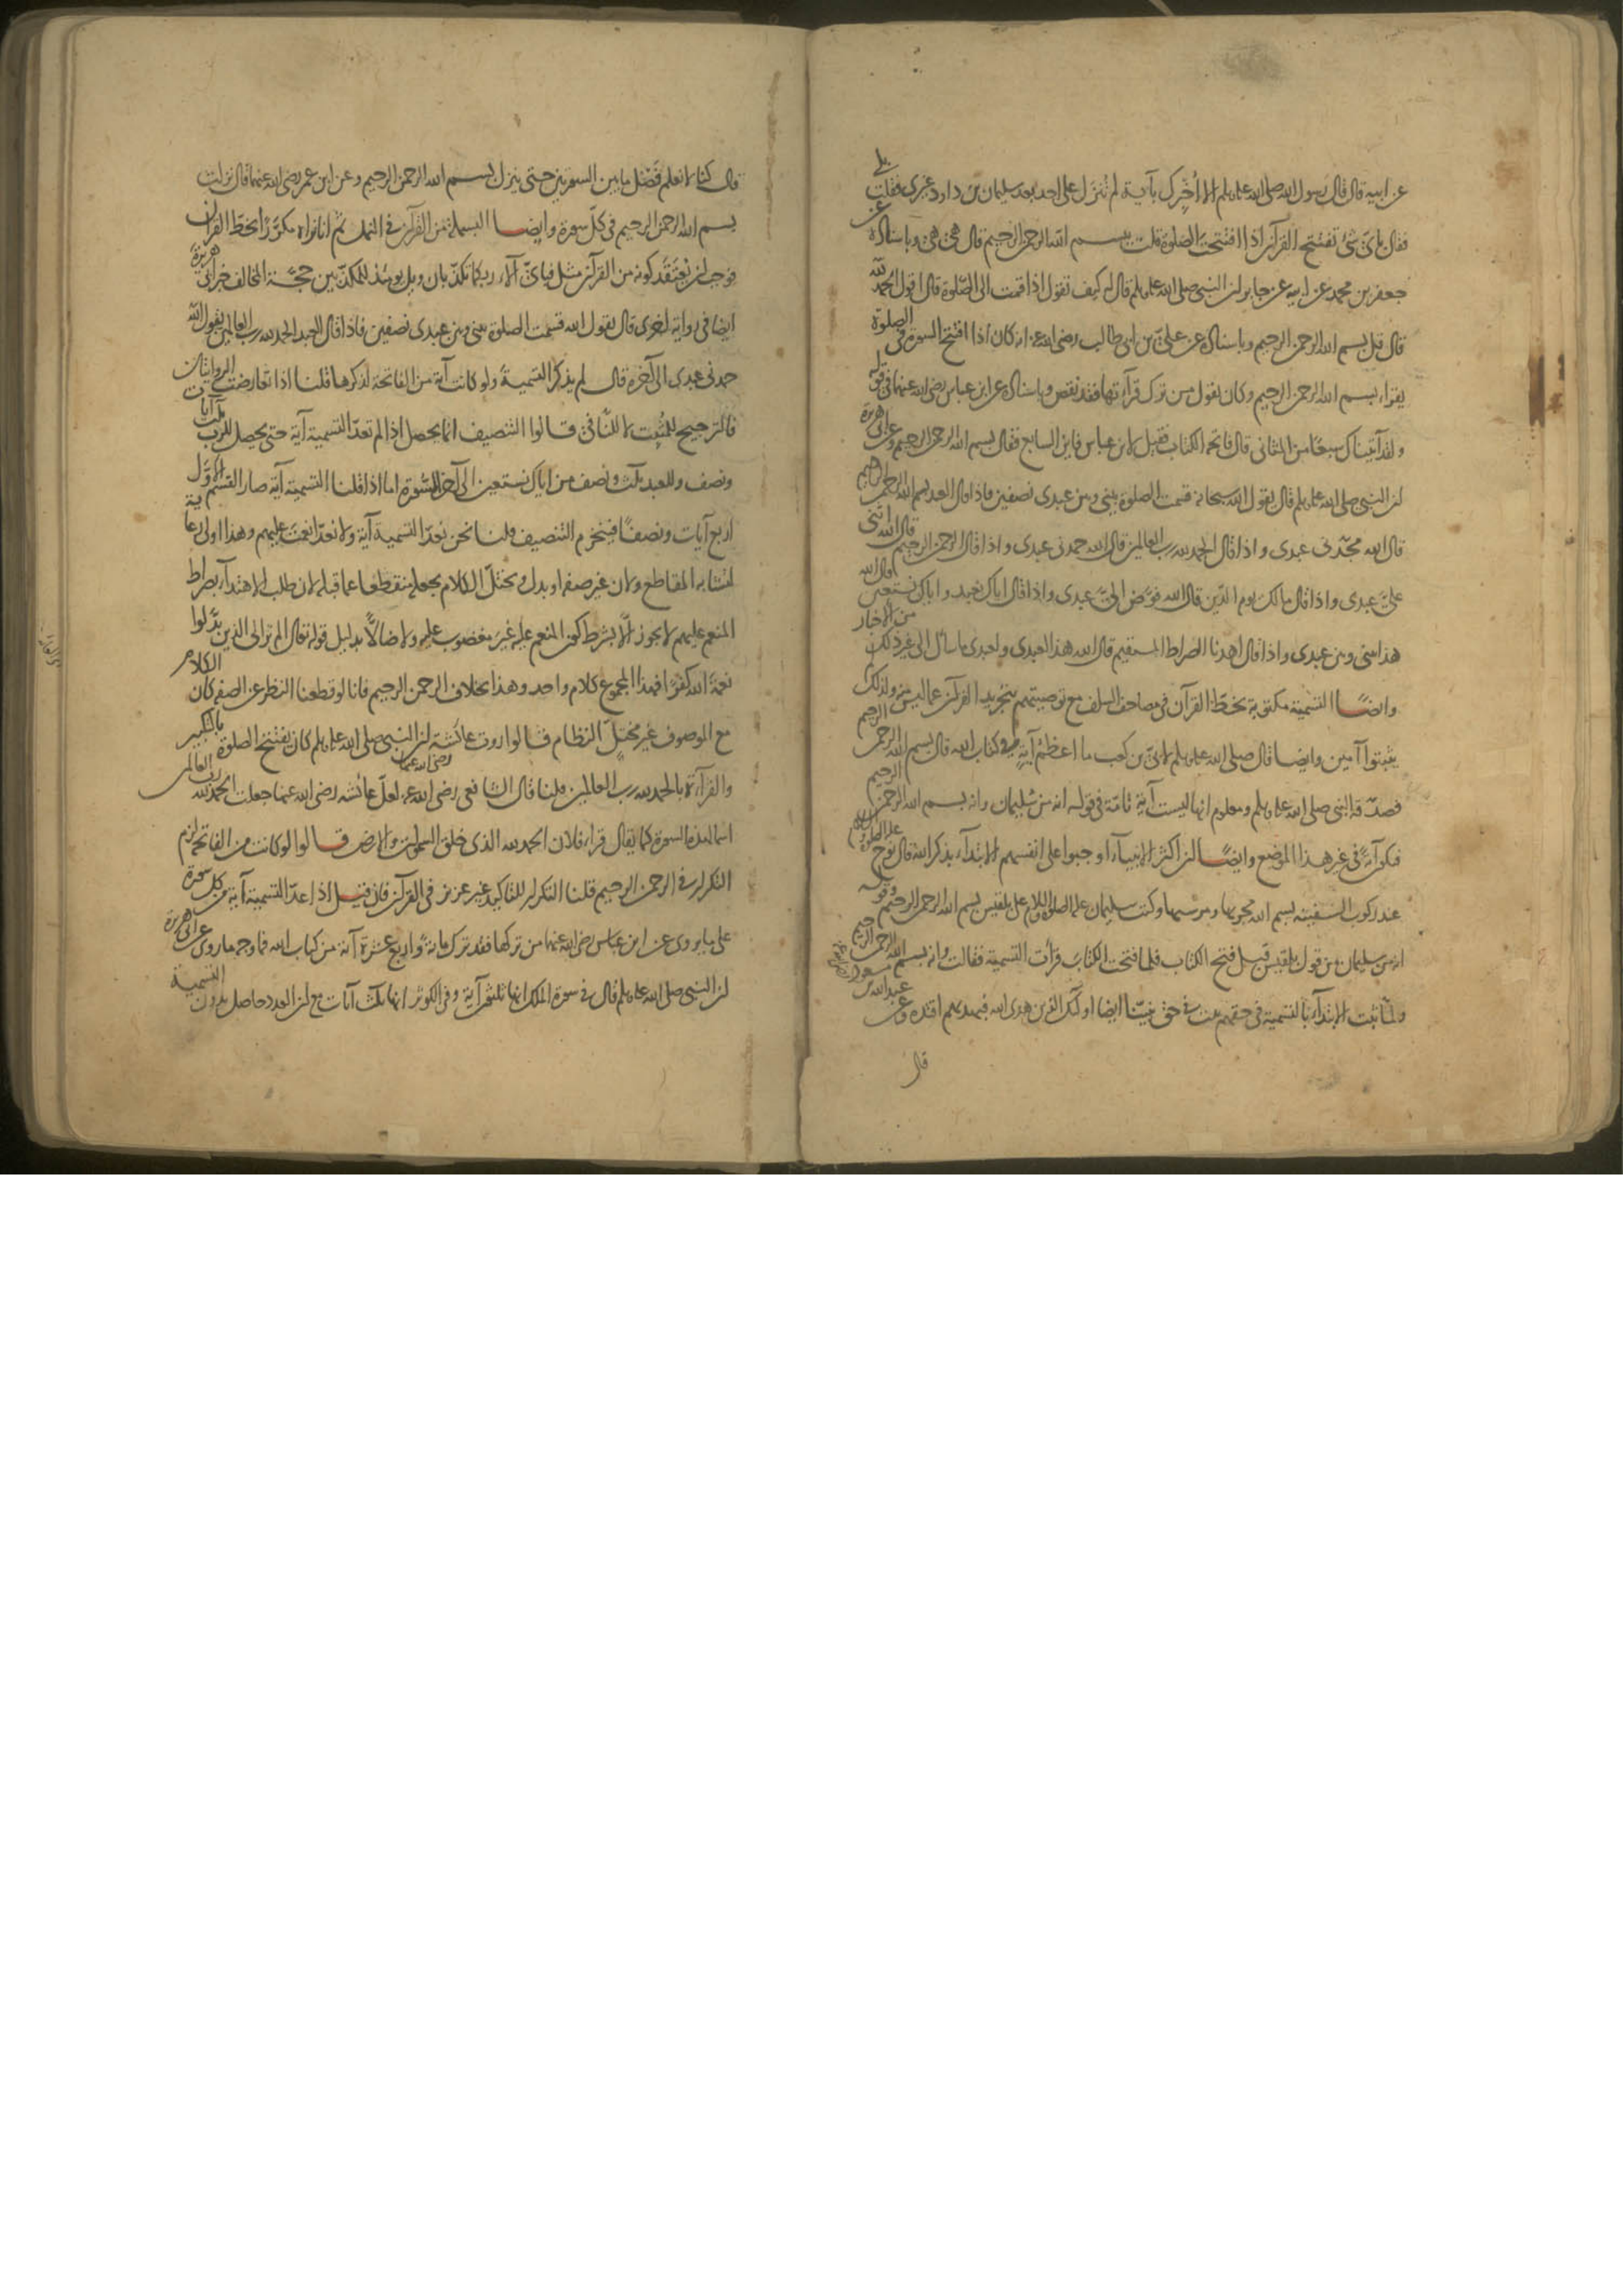 عن ابيه قال قال رسول الله صلى الله عليه وسلم الا أخبرك بآية لم تنزل على احد بعد سليمان بن داود غيرى فقلت بلى
فقال باىّ شئ تفتتح القرآن اذا افتتحت الصلوة قلت ببسم الله الرحمن الرحيم قال هى هى وباسناده عن
جعفر بن محمد عن ابيه عن جابر ان النبى صلى الله عليه وسلم قال له كيف تقول اذا قمت الى الصلوة قال اقول الحمد لله
قال قل بسم الله الرحمن الرحيم وباسناده عن على بن ابى طالب رضى الله عنه انه كان اذا افتتح السورة فى الصلوة
يقراء بسم الله الرحمن الرحيم وكان يقول من ترك قرآءتها فقد نقص وباسناده عن ابن عباس رضى الله عنهما فى قوله
ولقد آتيناك سبعا من المثانى قال فاتحة الكتاب فقيل لابن عباس فاين السابع فقال بسم الله الرحمن الرحيم وعن ابى هريرة
ان النبى صلى الله عليه وسلم قال يقول الله سبحانه قسمت الصلوة بينى وبين عبدى نصفين فاذا قال العبد بسم الله الرحمن الرحيم
قال الله مجّدنى عبدى واذا قال الحمد لله رب العالمين قال الله حمدنى عبدى واذا قال الرحمن الرحيم قال الله اثنى
علىّ عبدى واذا قال مالك يوم الدين قال الله فوّض الىّ عبدى واذا قال اياك نعبد واياك نستعين قال الله
هذا بينى وبين عبدى واذا قال اهدنا الصراط المستقيم قال الله هذا لعبدى ولعبدى ما سأل الى غير ذلك من الاخبار
وايضًا التسمية مكتوبة بخط القرآن فى مصاحف السلف مع توصيتهم بتجريد القرآن عما ليس منه ولذلك
يثبتوا آمين وايضا قال صلى الله عليه وسلم لابىّ بن كعب ما اعظم آية فى كتاب الله قال بسم الله الرحمن الرحيم
فصدّقه النبى صلى الله عليه وسلم ومعلوم انها ليست آية تامّة فى قوله انه من سليمان وانه بسم الله الرحمن الرحيم
فتكون آية فى غير هذا الموضع وايضًا ان اكثر الانبيآء اوجبوا على انفسهم الابتدآء بذكر الله قال نوح عليه الصلوة والسلام
عند ركوب السفينة بسم الله مجريها ومرسيها وكتب سليمان عليه الصلوة والسلام الى بلقيس بسم الله الرحمن الرحيم وقوله
انه من سليمان من قول بلقيس قبل فتح الكتاب فلما فتحت الكتاب قرأت التسمية فقالت وانه بسم الله الرحمن الرحيم
ولمّا ثبت الابتدآء بالتسمية فى حقهم ثبت فى حق نبيّنا ايضا اولئك الذين هدى الله فبهديهم اقتده وعن عبد الله بن مسعود رضى الله عنه
قال
قال كنا لا نعلم فصل ما بين السورتين حتى ينزل بسم الله الرحمن الرحيم وعن ابن عمر رضى الله عنهما قال نزلت
بسم الله الرحمن الرحيم فى كلّ سورة وايضا البسملة من القرآن فى النمل ثم انا نراه مكرّرًا بخط القرآن
فوجب ان نعتقد كونه من القرآن مثل فباىّ آلاء ربكما تكذّبان وويل يومئذ للمكذّبين حجّة المخالف خبر ابى هريرة
ايضا فى رواية اخرى قال يقول الله قسمت الصلوة بينى وبين عبدى نصفين فاذا قال العبد الحمد لله رب العالمين يقول الله
حمدنى عبدى الى آخره قال لم يذكر التسمية ولو كانت آية من الفاتحة لذكرها قلنا اذا تعارضت الروايتان
فالترجيح للمثبت لا للنّافى قالوا التنصيف انما يحصل اذا لم تعدّ التسمية آية حتى يحصل للربّ ثلاث آيات
ونصف وللعبد ثلث ونصف من اياك نستعين الى آخر السّورة اما اذا قلنا التسمية آية صار القسم الاوّل
اربع آيات ونصفًا فينخرم التنصيف قلنا نحن نعدّ التسمية آية ولا نعدّ انعمت عليهم وهذا اولى رعاية
لتشابه المقاطع ولان غير صفة او بدل ويختلّ الكلام بجعله منقطعا عما قبله لان طلب الاهتدآء بصراط
المنعم عليهم لا يجوز الّا بشرط كون المنعم عليه غير مغضوب عليه ولا ضالّا بدليل قوله تعالى الم تر الى الذين بدّلوا
نعمة الله كفرًا فهذا المجموع كلام واحد وهذا بخلاف الرحمن الرحيم فانا لو قطعنا النظر عن الصفة كان الكلام
مع الموصوف غير مختلّ النظام قالوا روت عائشة رضى الله عنها ان النبى صلى الله عليه وسلم كان يفتتح الصلوة بالتكبير
والقرآءة بالحمد لله رب العالمين قلنا قال الشافعى رضى الله عنه لعلّ عائشة رضى الله عنها جعلت الحمد لله رب العالمين
اسما لهذه السورة كما يقال قراء فلان الحمد لله الذى خلق السموات والارض قالوا لو كانت من الفاتحة لزم
التكرار فى الرحمن الرحيم قلنا التكرار للتاكيد غير عزيز فى القرآن فان قيل اذا عدّ التسمية آية من كل سورة
على ما يروى عن ابن عباس رضى الله عنهما من تركها فقد ترك مائة واربع عشرة آية من كتاب الله فما وجه ما روى عن ابى هريرة
ان النبى صلى الله عليه وسلم قال فى سورة الملك انها ثلثون آية وفى الكوثر انها ثلث آيات مع ان العدد حاصل بدون التسمية